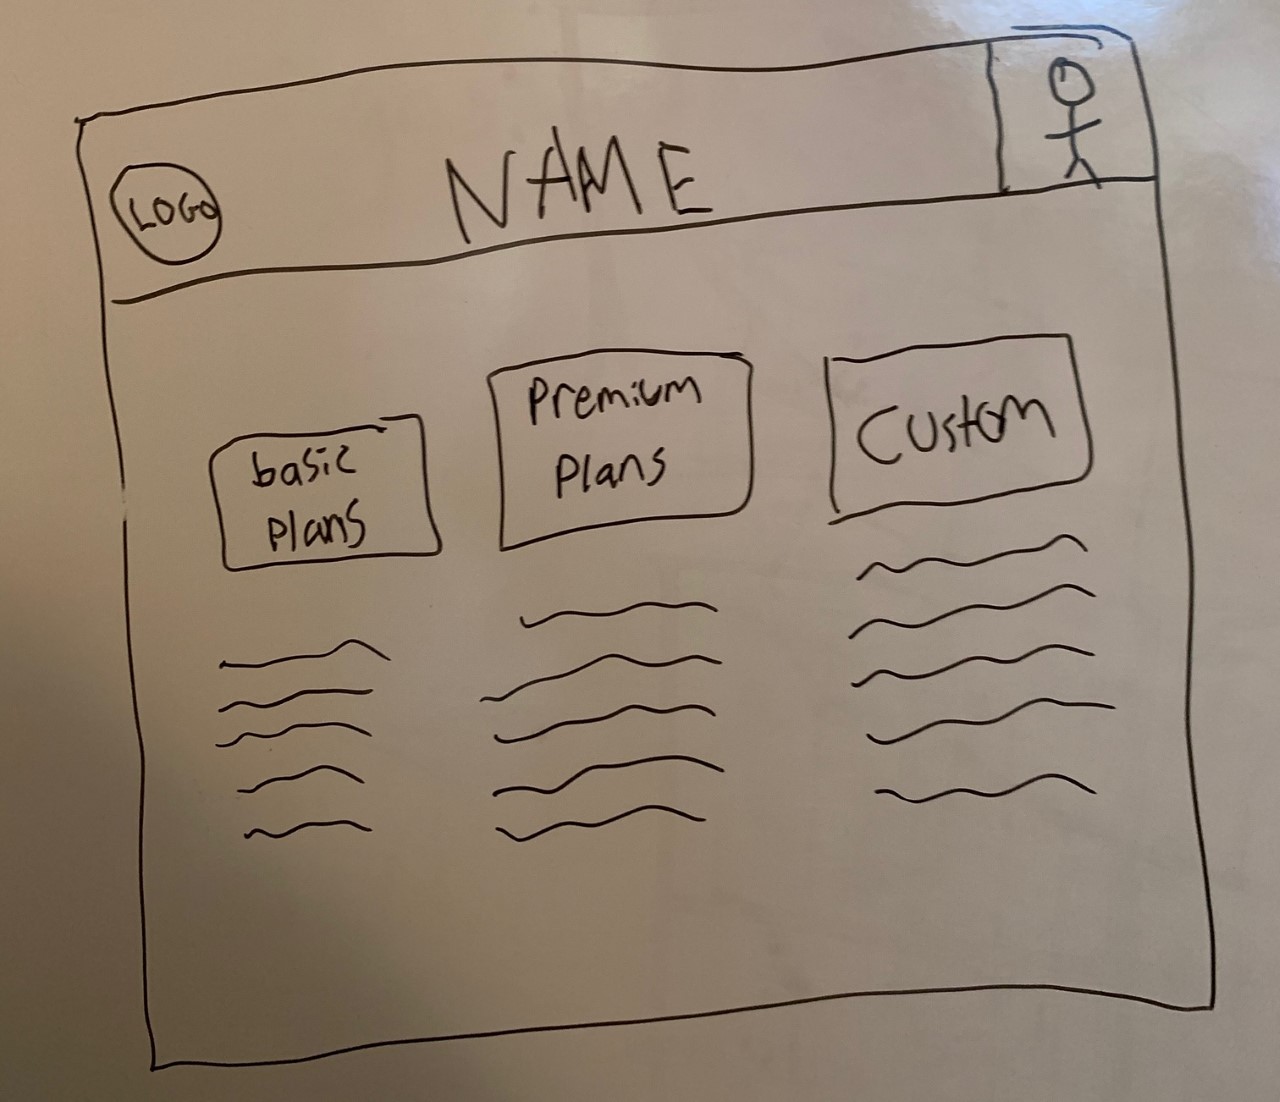 LOGO
NAME
basic
plans
Premium
Plans
Custom